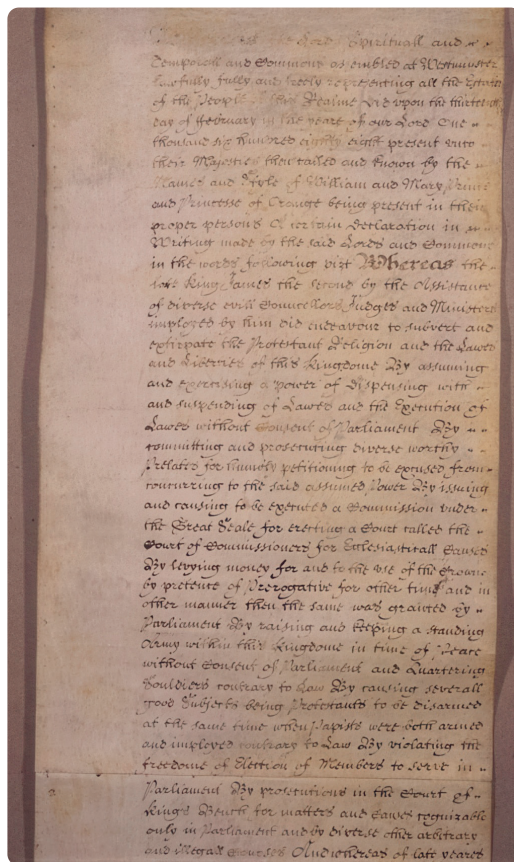 Whereas the Lords Spirituall and
Temporall and Com̄ons assembled at Westminster
lawfully fully and freely representing all the Estates
of the People of this Realme did upon the thirteenth
day of February in the yeare of our Lord One
thousand six hundred eighty eight present unto
their Majesties then called and known by the
Names and Style of William and Mary Prince
and Princesse of Orange being present in their
proper persons A certain Declaration in
Writing made by the said Lords and Com̄ons
in the words following vizt Whereas the
late King James the second by the Assistance
of diverse evill Councellors Judges and Ministers
imployed by him did endeavour to subvert and
extirpate the Protestant Religion and the Lawes
and Liberties of this Kingdome By assuming
and exercising a power of dispensing with
and suspending of Lawes and the Execution of
Lawes without Consent of Parliament By
committing and prosecuting diverse worthy
Prelates for humbly petitioning to be excused from
concurring to the said assumed Power By issuing
and causing to be executed a Commission under
the Great Seale for erecting a Court called the
Court of Commissioners for Ecclesiasticall Causes
By levying money for and to the use of the Crowne
by pretence of Prerogative for other time and in
other manner then the same was granted by
Parliament By raising and keeping a standing
Army within this Kingdome in time of Peace
without Consent of Parliament and Quartering
Souldiers contrary to Law By causing severall
good Subjects being Protestants to be disarmed
at the same time when Papists were both armed
and imployed contrary to Law By violating the
freedome of Election of Members to serve in
Parliament By prosecutions in the Court of
Kings Bench for matters and Causes cognizable
only in Parliament and by diverse other arbitrary
and illegall Courses And whereas of late yeares